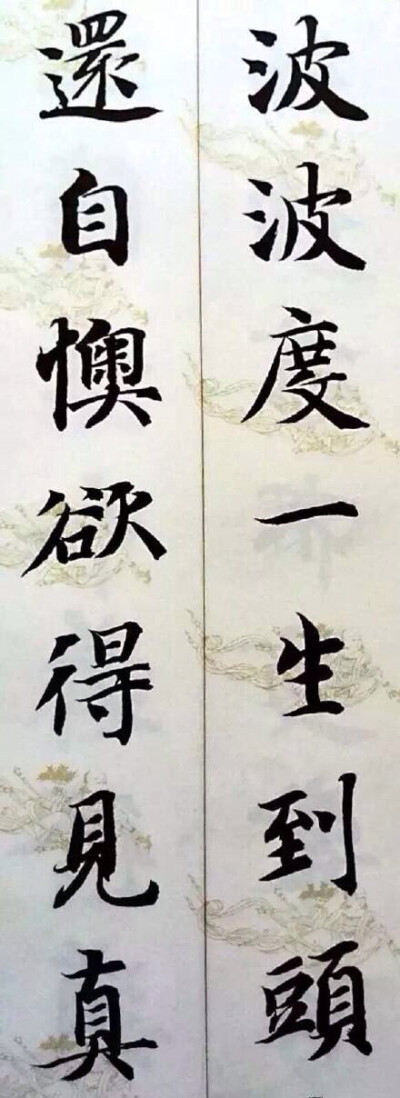 波波度一生到頭
還自懊欲得見真